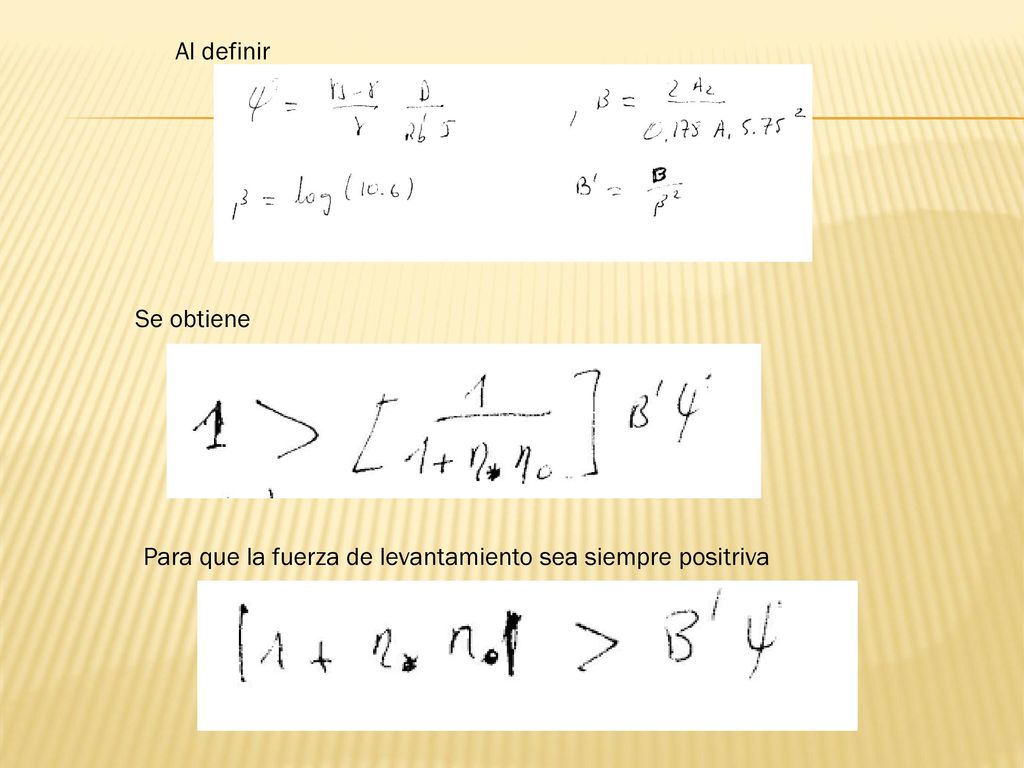 Al definir
Ψ = (γs-γ)/γ D/(Rb' S) , B = 2 A2/(0.178 A, 5.75²)
β = log (10.6) B' = B/β²
Se obtiene
1 > [1/(1+η* η0)] B'Ψ
Para que la fuerza de levantamiento sea siempre positriva
[1 + η* η0] > B'Ψ